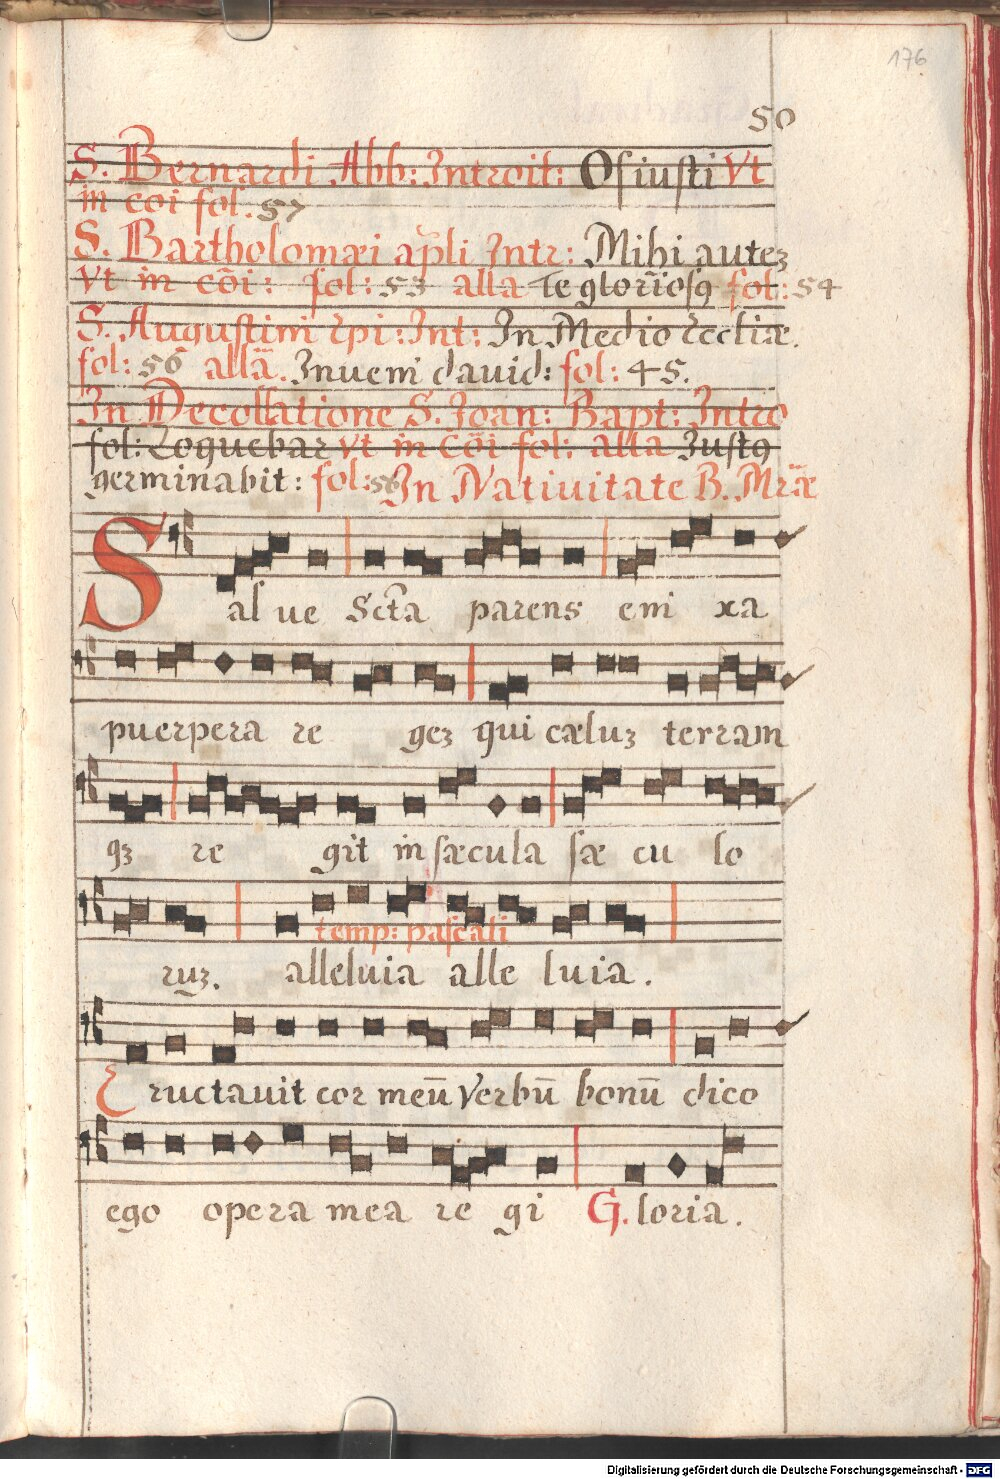 176
50
S. Bernardi Abb: Introit: Os iusti Vt
in coi fol. 57
S. Bartholomæi apli Intr: Mihi autez
Vt in cõi: fol: 53 alla Te glorĩosꝯ fol: 54
S. Augustini Epi: Int: In Medio Eccliæ.
fol: 56 allã. Inueni dauid: fol: 45.
In Decollatione S. Joan: Bapt: Intro
fol: Loquebar Vt in Cõi fol: alla Justꝯ
germinabit: fol: 56 In Natiuitate B. Mrãæ
Sal ue Sctã parens eni xa
puerpera re gez qui cæluz terram
qz re git in sæcula sæ cu lo
temp: pascali
ruz. alleluia alle luia.
Eructauit cor meũ Verbũ bonũ dico
ego opera mea re gi G. loria.
Digitalisierung gefördert durch die Deutsche Forschungsgemeinschaft - DFG